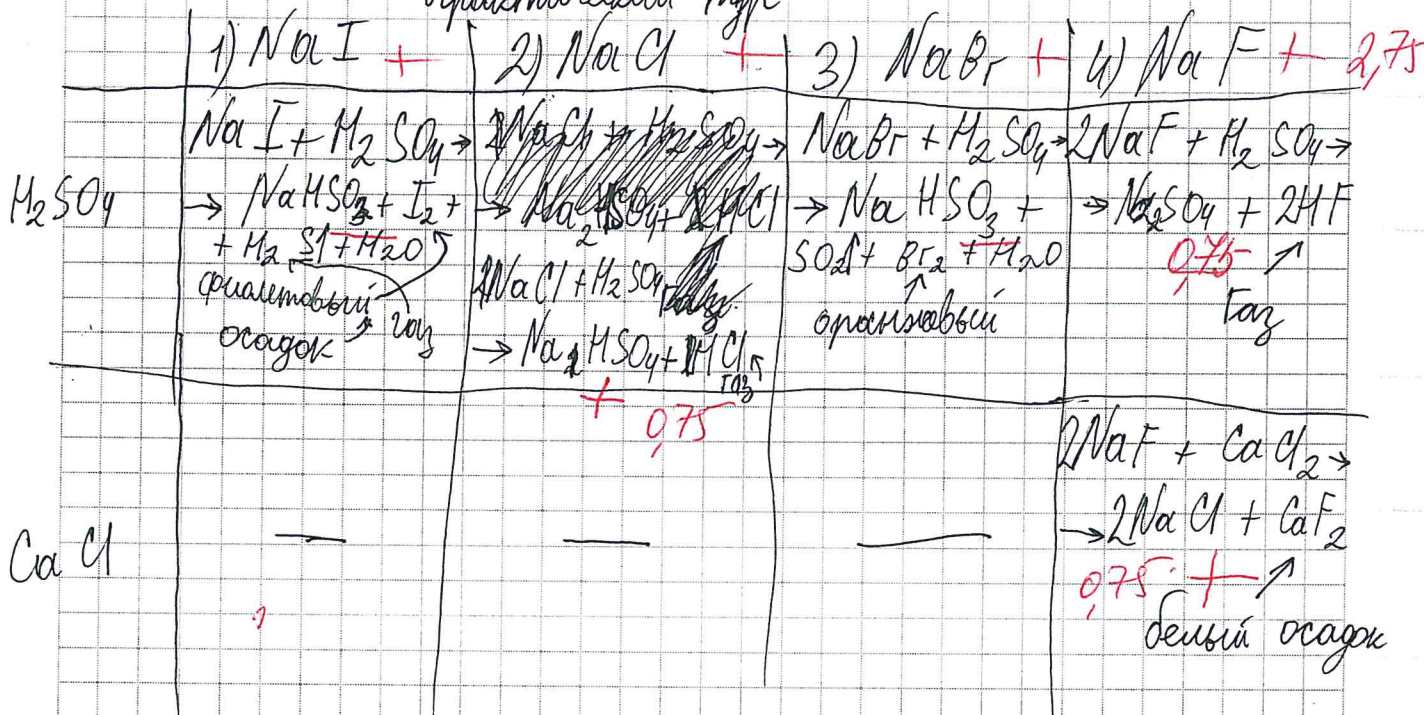 1) NaI + 2) NaCl + 3) NaBr + 4) NaF + 2,75
H₂SO₄
NaI + H₂SO₄ →
→ NaHSO₃ + I₂ +
+ H₂S↑ + H₂O
фиолетовый
осадок
газ
2NaCl + H₂SO₄
→ Na HSO₄ + HCl
газ
+ 0,75
NaBr + H₂SO₄ →
→ NaHSO₃ +
SO₂↑ + Br₂ + H₂O
оранжовый
2NaF + H₂SO₄ →
→ Na₂SO₄ + 2HF
0,75
Газ
CaCl
—
—
—
2NaF + CaCl₂ →
→ 2NaCl + CaF₂
0,75 +
белый осадок